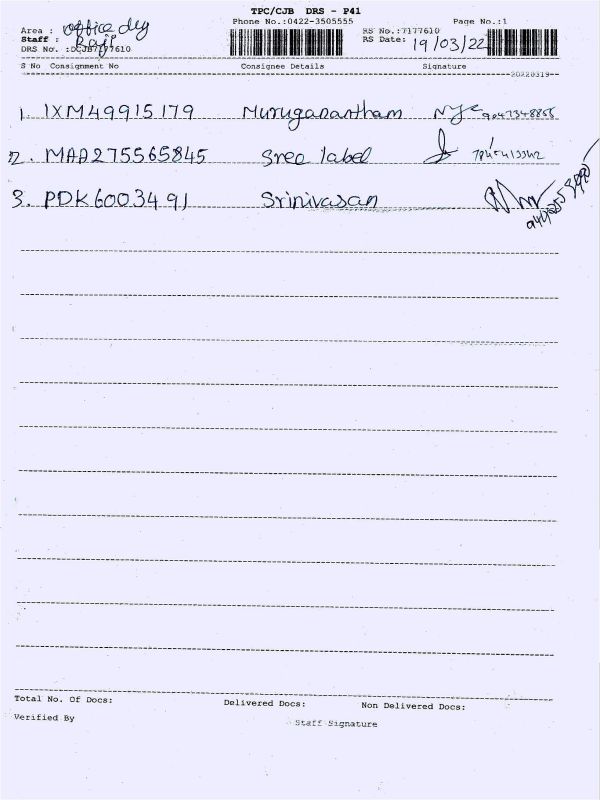 TPC/CJB DRS - P41
Phone No.:0422-3505555 Page No.:1
Area : office dly
Staff : Raji
DRS No. :DCJB7177610
RS No.:7177610
RS Date: 19/03/22
S No Consignment No Consignee Details Signature
20220319
1. IXM49915179 Muruganantham
2. MAA275565845 Sree label
3. PDK6003491 Srinivasan
Total No. Of Docs: Delivered Docs: Non Delivered Docs:
Verified By Staff Signature